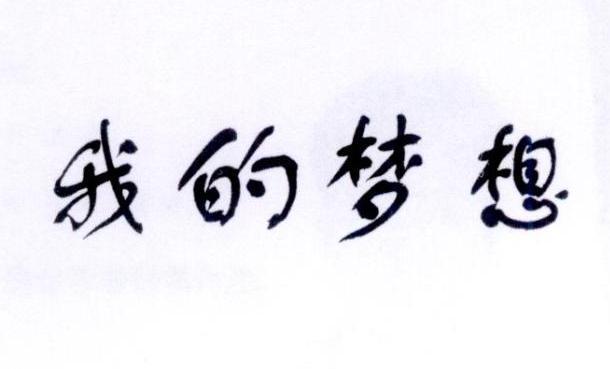 我的梦想